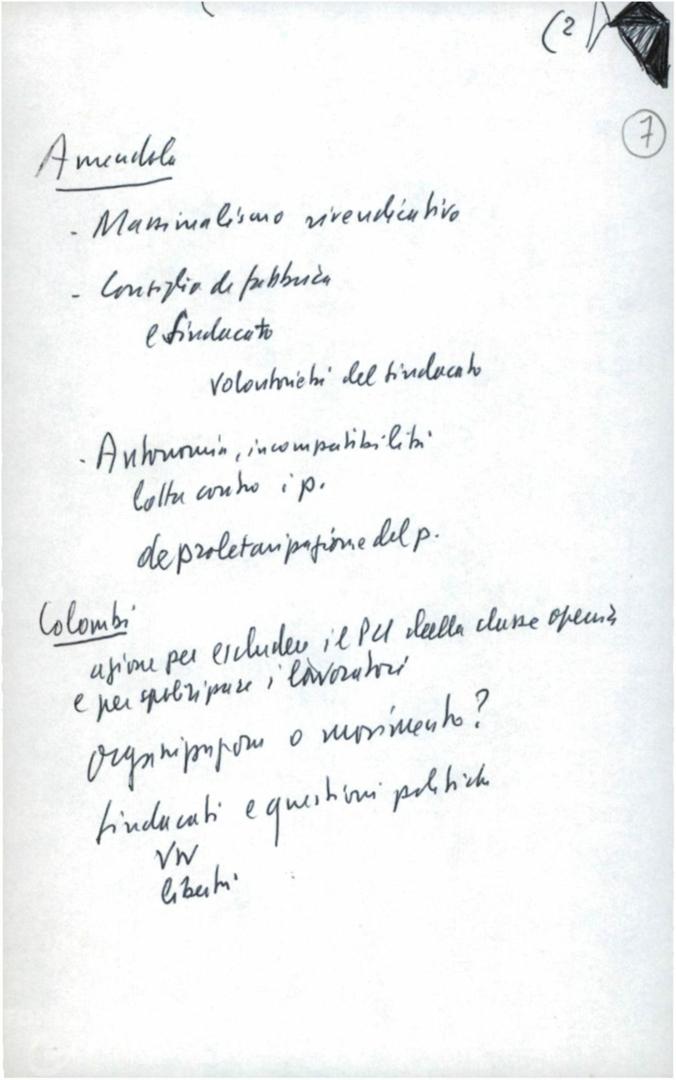 (2)
7
Amendola
- Massimalismo rivendicativo
- Consiglio di fabbrica
e sindacato
volontarietà del sindacato
- Autonomia, incompatibilità
lotta contro i p.
deproletarizzazione del p.
Colombi
azione per escludere il PCI dalla classe operaia
e per spoliticizzare i lavoratori
Organizzazione o movimento?
sindacati e questioni politiche
VN
libertà